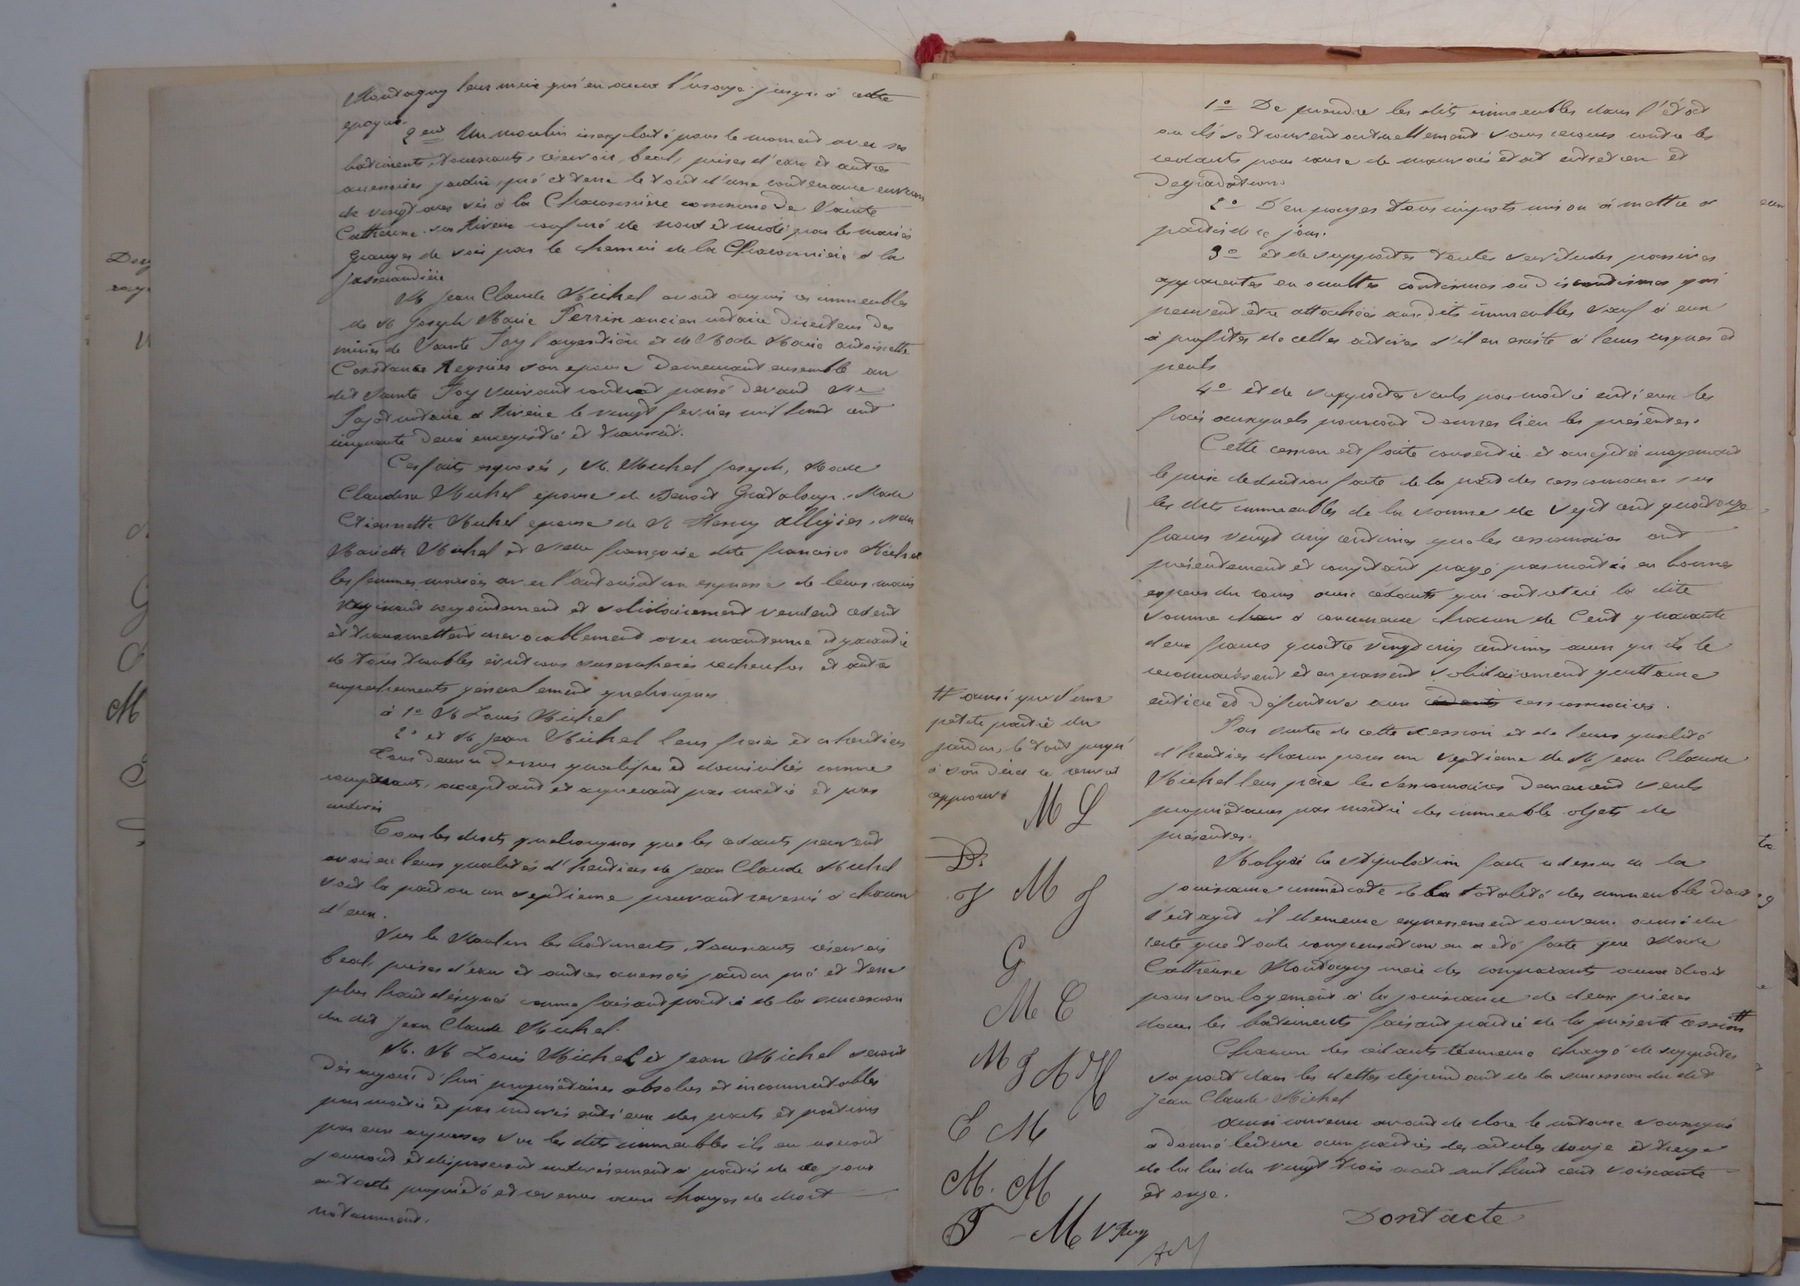 Montagny leur mère qui en aura l'usage jusqu'à cette
époque.
2ent Un moulin inexploité pour le moment avec ses
bâtiments, tournants, réservoir, béal, prises d'eau et autres
accessoires jardin, pré et terre le tout d'une contenance environ
de vingt ares sis à la Chaconnière commune de Sainte
Catherine sur Rivérie confiné de nord et midi par le mariés
Granges de soir par le chemin de la Chaconnière à la
Jasserandière
M Jean Claude Michel avait acquis ces immeubles
de M Joseph Marie Perrin ancien notaire directeur des
mines de Sainte Foy l'argentière et de Made Marie antoinette
Constance Reynier son épouse demeurant ensemble au
dit Sainte Foy suivant contrat passé devant Me
Fayot notaire à Rivérie le vingt fevrier mil huit cent
cinquante deux enregistré et transcrit.
Ces faits exposés, M. Michel Joseph, Made
Claudine Michel épouse de Benoit Grataloup, Made
Etiennette Michel epouse de M Henry Alligier, Melle
Mariette Michel et Melle françoise dite francine Michel
les femmes mariées avec l'autorisation expresse de leurs maris
agissant conjointement et solidairement vendent cèdent
et transmettent irrévocablement avec maintenue et garantie
de tous troubles évictions surenchères recherches et autres
empechements généralement quelconques
à 1o M Louis Michel
2o et M Jean Michel leurs frères et cohéritiers
Tous deux ci dessus qualifiés et domiciliés comme
comparants, acceptant et acquerant par moitié et par
indivis
Tous les droits quelconques que les cédants peuvent
avoir en leurs qualités d'héritiers de Jean Claude Michel
soit la part ou un septième pouvant revenir à chacun
d'eux.
Sur le Moulin les batiments, tournants réservoir
béal, prises d'eau et autres accessoires jardin pré et terre
plus haut désignés comme faisant partie de la succession
du dit Jean Claude Michel.
M. M Louis Michel et Jean Michel seront
dès aujourd'hui propriétaires absolus et incommutables
par moitié et par indivis entr'eux des parts et portions
par eux acquises sur les dits immeubles ils en useront
jouiront et disposeront entièrement à partir de ce jour
en toute propriété et revenus aux charges de droit
notamment.
1o De prendre les dits immeubles dans l'état
où ils se trouvent actuellement sans recours contre les
cédants pour cause de mauvais état entretien et
dégradations.
2o D'en payer tous impots mis ou à mettre à
partir de ce jour.
3o et de supporter toutes servitudes passives
apparentes ou occultes continues ou discontinues qui
peuvent être attachées aux dits immeubles sauf à eux
à profiter de celles actives s'il en existe à leurs risques et
perils
4o et de supporter seuls par moitié entr'eux les
frais auxquels pourront donner lieu les présentes.
Cette cession est faite consentie et acceptée moyennant
le prix déduction faite de la part des cessionnaires sur
les dits immeubles de la somme de sept cent quatorze
francs vingt cinq centimes que les cessionnaires ont
présentement et comptant payé par moitié en bonnes
espèces du cours aux cédants qui ont retiré la dite
somme à concurrence chacun de Cent quarante
deux francs quatre vingt cinq centimes ainsi qu'ils le
reconnaissent et en passent solidairement quittance
entière et définitive aux cédants cessionnaires.
Par suite de cette cession et de leurs qualité
d'héritiers chacun pour un septième de M Jean Claude
Michel leur père les cessionnaires demeurent seuls
propriétaires par moitié des immeubles objets des
présentes.
Malgré la stipulation faite ci dessus de la
jouissance immédiate de la totalité des immeubles dont
s'est agit il demeure expressement convenu ainsi du
reste que toute compensation en a été faite que Made
Catherine Montagny mère des comparants aura droit
pour son logement à la jouissance de deux pièces
dans les batiments faisant partie de la présente cession #
Chacun des cédants demeure chargé de supporter
sa part dans les dettes dépendant de la succession du dit
Jean Claude Michel
Ainsi convenu avant de clore le notaire soussigné
a donné lecture aux parties des articles douze et treize
de la loi du vingt trois août mil huit cent soixante
et onze.
Dont acte
# ainsi que d'une
petite partie du
jardin, le tout jusqu'
à son décès ce renvoi
approuvé
M L
J M J
G
M C
M J A H
E M
M. M
F - M